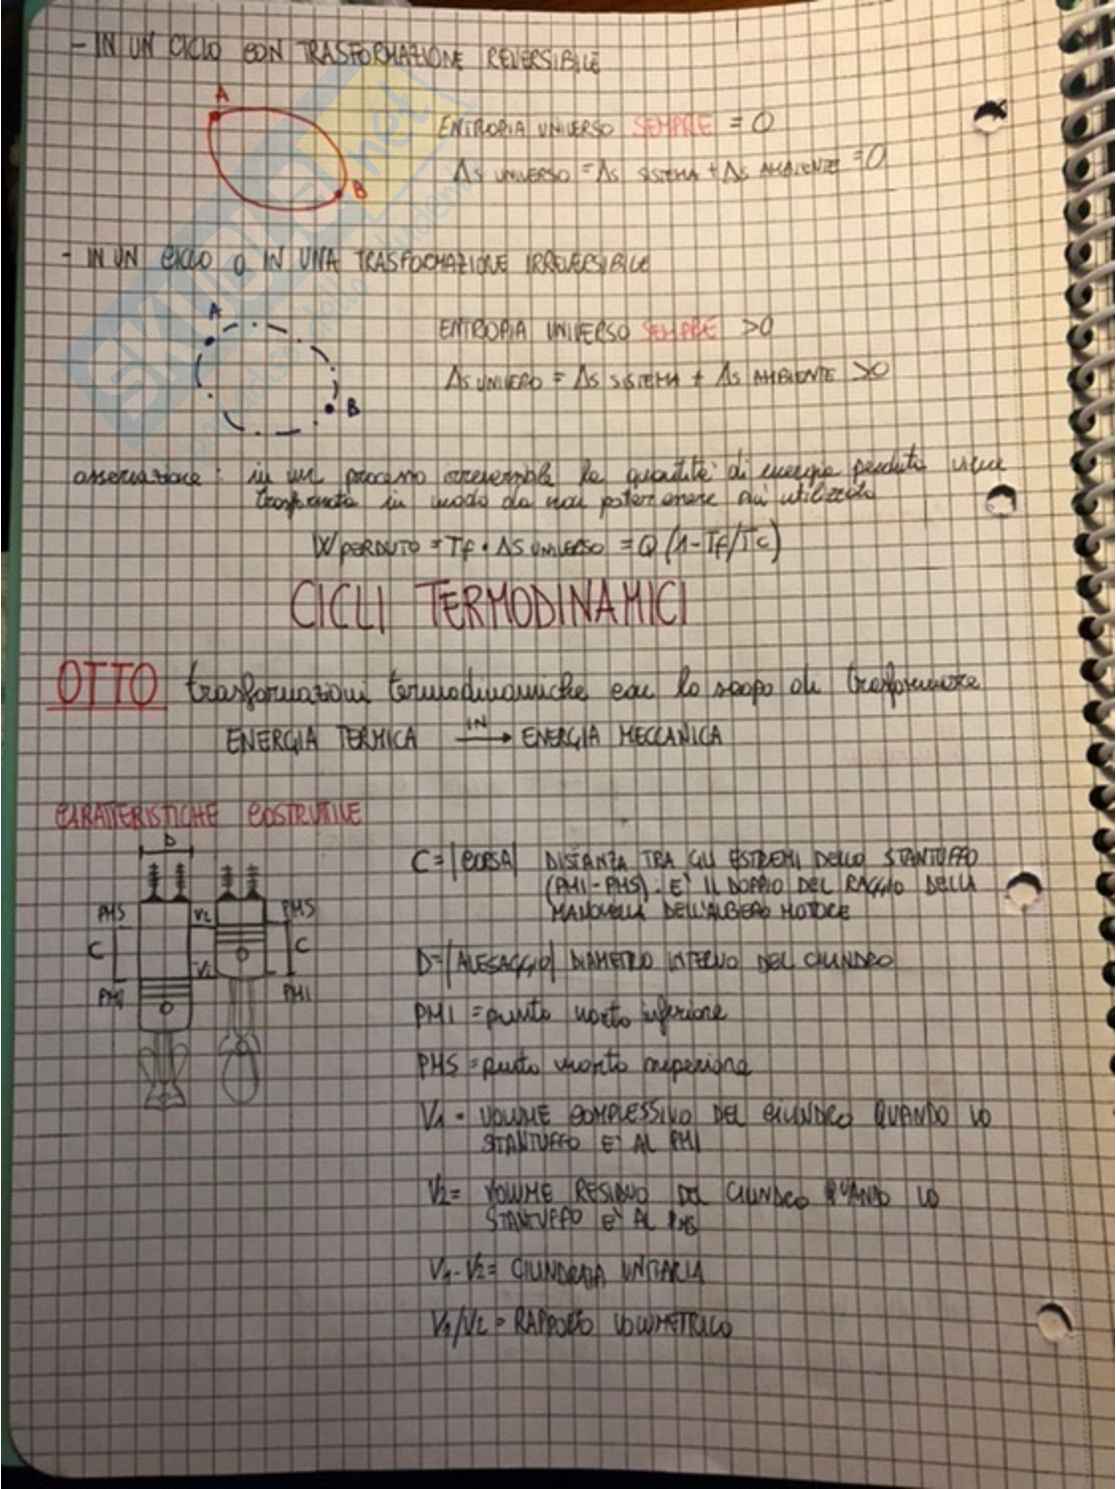 - IN UN CICLO CON TRASFORMAZIONE REVERSIBILE
A
ENTROPIA UNIVERSO SEMPRE = 0
B
ΔS UNIVERSO = ΔS SISTEMA + ΔS AMBIENTE = 0
- IN UN CICLO O IN UNA TRASFORMAZIONE IRREVERSIBILE
A
ENTROPIA UNIVERSO SEMPRE >0
ΔS UNIVERO = ΔS SISTEMA + ΔS AMBIENTE >0
B
osservazione: in un processo irreversibile la quantità di energia perduta viene
trasformata in modo da non poter essere più utilizzata
W PERDUTO = Tf · ΔS UNIVERSO = Q (1-Tf/Tc)
CICLI TERMODINAMICI
OTTO trasformazioni termodinamiche con lo scopo di trasformare
ENERGIA TERMICA IN → ENERGIA MECCANICA
CARATTERISTICHE COSTRUTTIVE
D
C = |CORSA| DISTANZA TRA GLI ESTREMI DELLO STANTUFFO
(PMI-PMS). E' IL DOPPIO DEL RAGGIO DELLA
MANOVELLA DELL'ALBERO MOTORE
PMS V2 PMS
C C
D = |ALESAGGIO| DIAMETRO INTERNO DEL CILINDRO
PMI PMI
PMI = punto morto inferiore
PMS = punto morto superiore
V1 = VOLUME COMPLESSIVO DEL CILINDRO QUANDO LO
STANTUFFO E' AL PMI
V2 = VOLUME RESIDUO DEL CILINDRO QUANDO LO
STANTUFFO E' AL PMS
V1-V2 = CILINDRATA UNITARIA
V1/V2 = RAPPORTO VOLUMETRICO